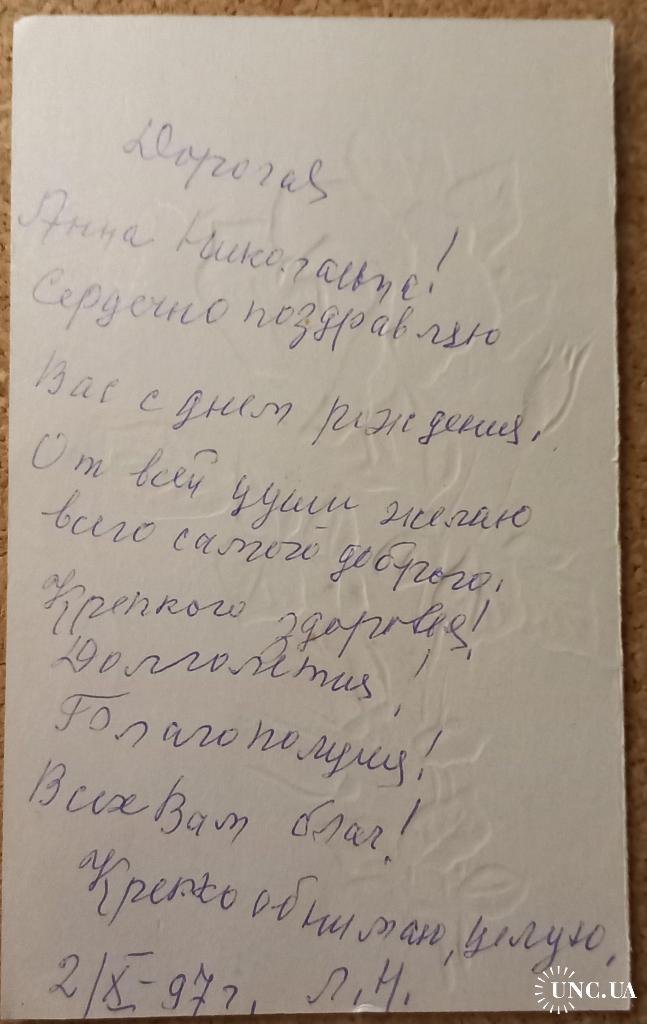 Дорогая
Анна Николаевна!
Сердечно поздравляю
Вас с днем рождения.
От всей души желаю
всего самого доброго,
Крепкого здоровья!
Долголетия!
Благополучия!
Всех Вам благ!
Крепко обнимаю, целую,
2/X-97г. Л.Н.
UNC.UA